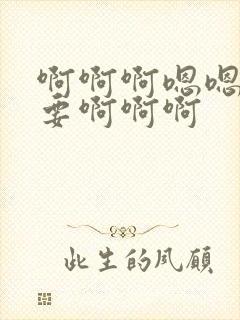 啊啊啊嗯嗯
要啊啊啊
此生的风顾